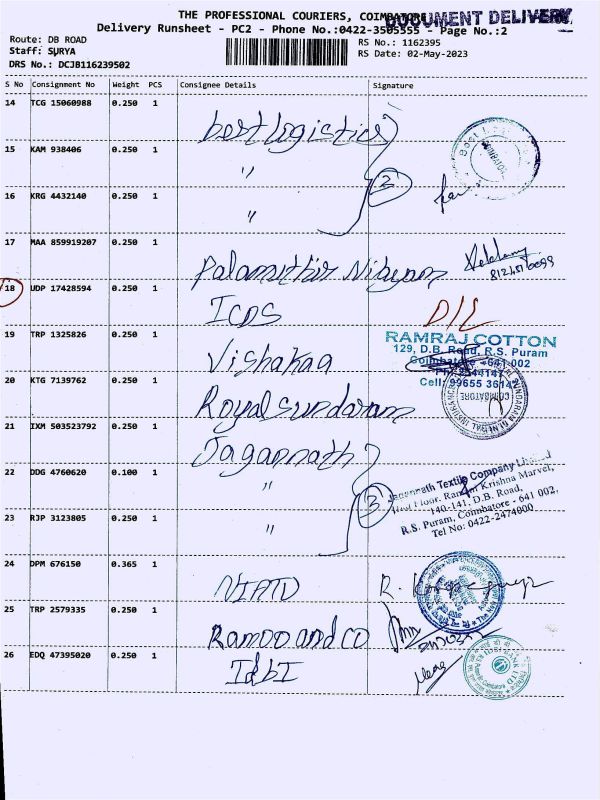 THE PROFESSIONAL COURIERS, COIMBATORE
DOCUMENT DELIVERY
Delivery Runsheet - PC2 - Phone No.:0422-3505555 - Page No.:2
Route: DB ROAD
RS No.: 1162395
Staff: SURYA
RS Date: 02-May-2023
DRS No.: DCJB116239502
S No Consignment No Weight PCS Consignee Details Signature
14 TCG 15060988 0.250 1 best logistics
15 KAM 938406 0.250 1 "
16 KRG 4432140 0.250 1 "
3
17 MAA 859919207 0.250 1 Palamuthir Nilayam
18 UDP 17428594 0.250 1 ICDS D/L
19 TRP 1325826 0.250 1 Vishakaa
RAMRAJ COTTON
129, D.B. Road, R.S. Puram
Coimbatore - 641 002
Cell: 99655 36142
20 KTG 7139762 0.250 1 Royal sundaram
21 IXM 503523792 0.250 1 Jagannath
22 DDG 4760620 0.100 1 "
23 RJP 3123805 0.250 1 "
3
Jagannath Textile Company Limited
Floor, Krishna Marvel,
140-141, D.B. Road,
R.S. Puram, Coimbatore - 641 002,
Tel No: 0422-2474000
24 DPM 676150 0.365 1 NIATD
25 TRP 2579335 0.250 1 Ramoo and co
26 EDQ 47395020 0.250 1 IdbI